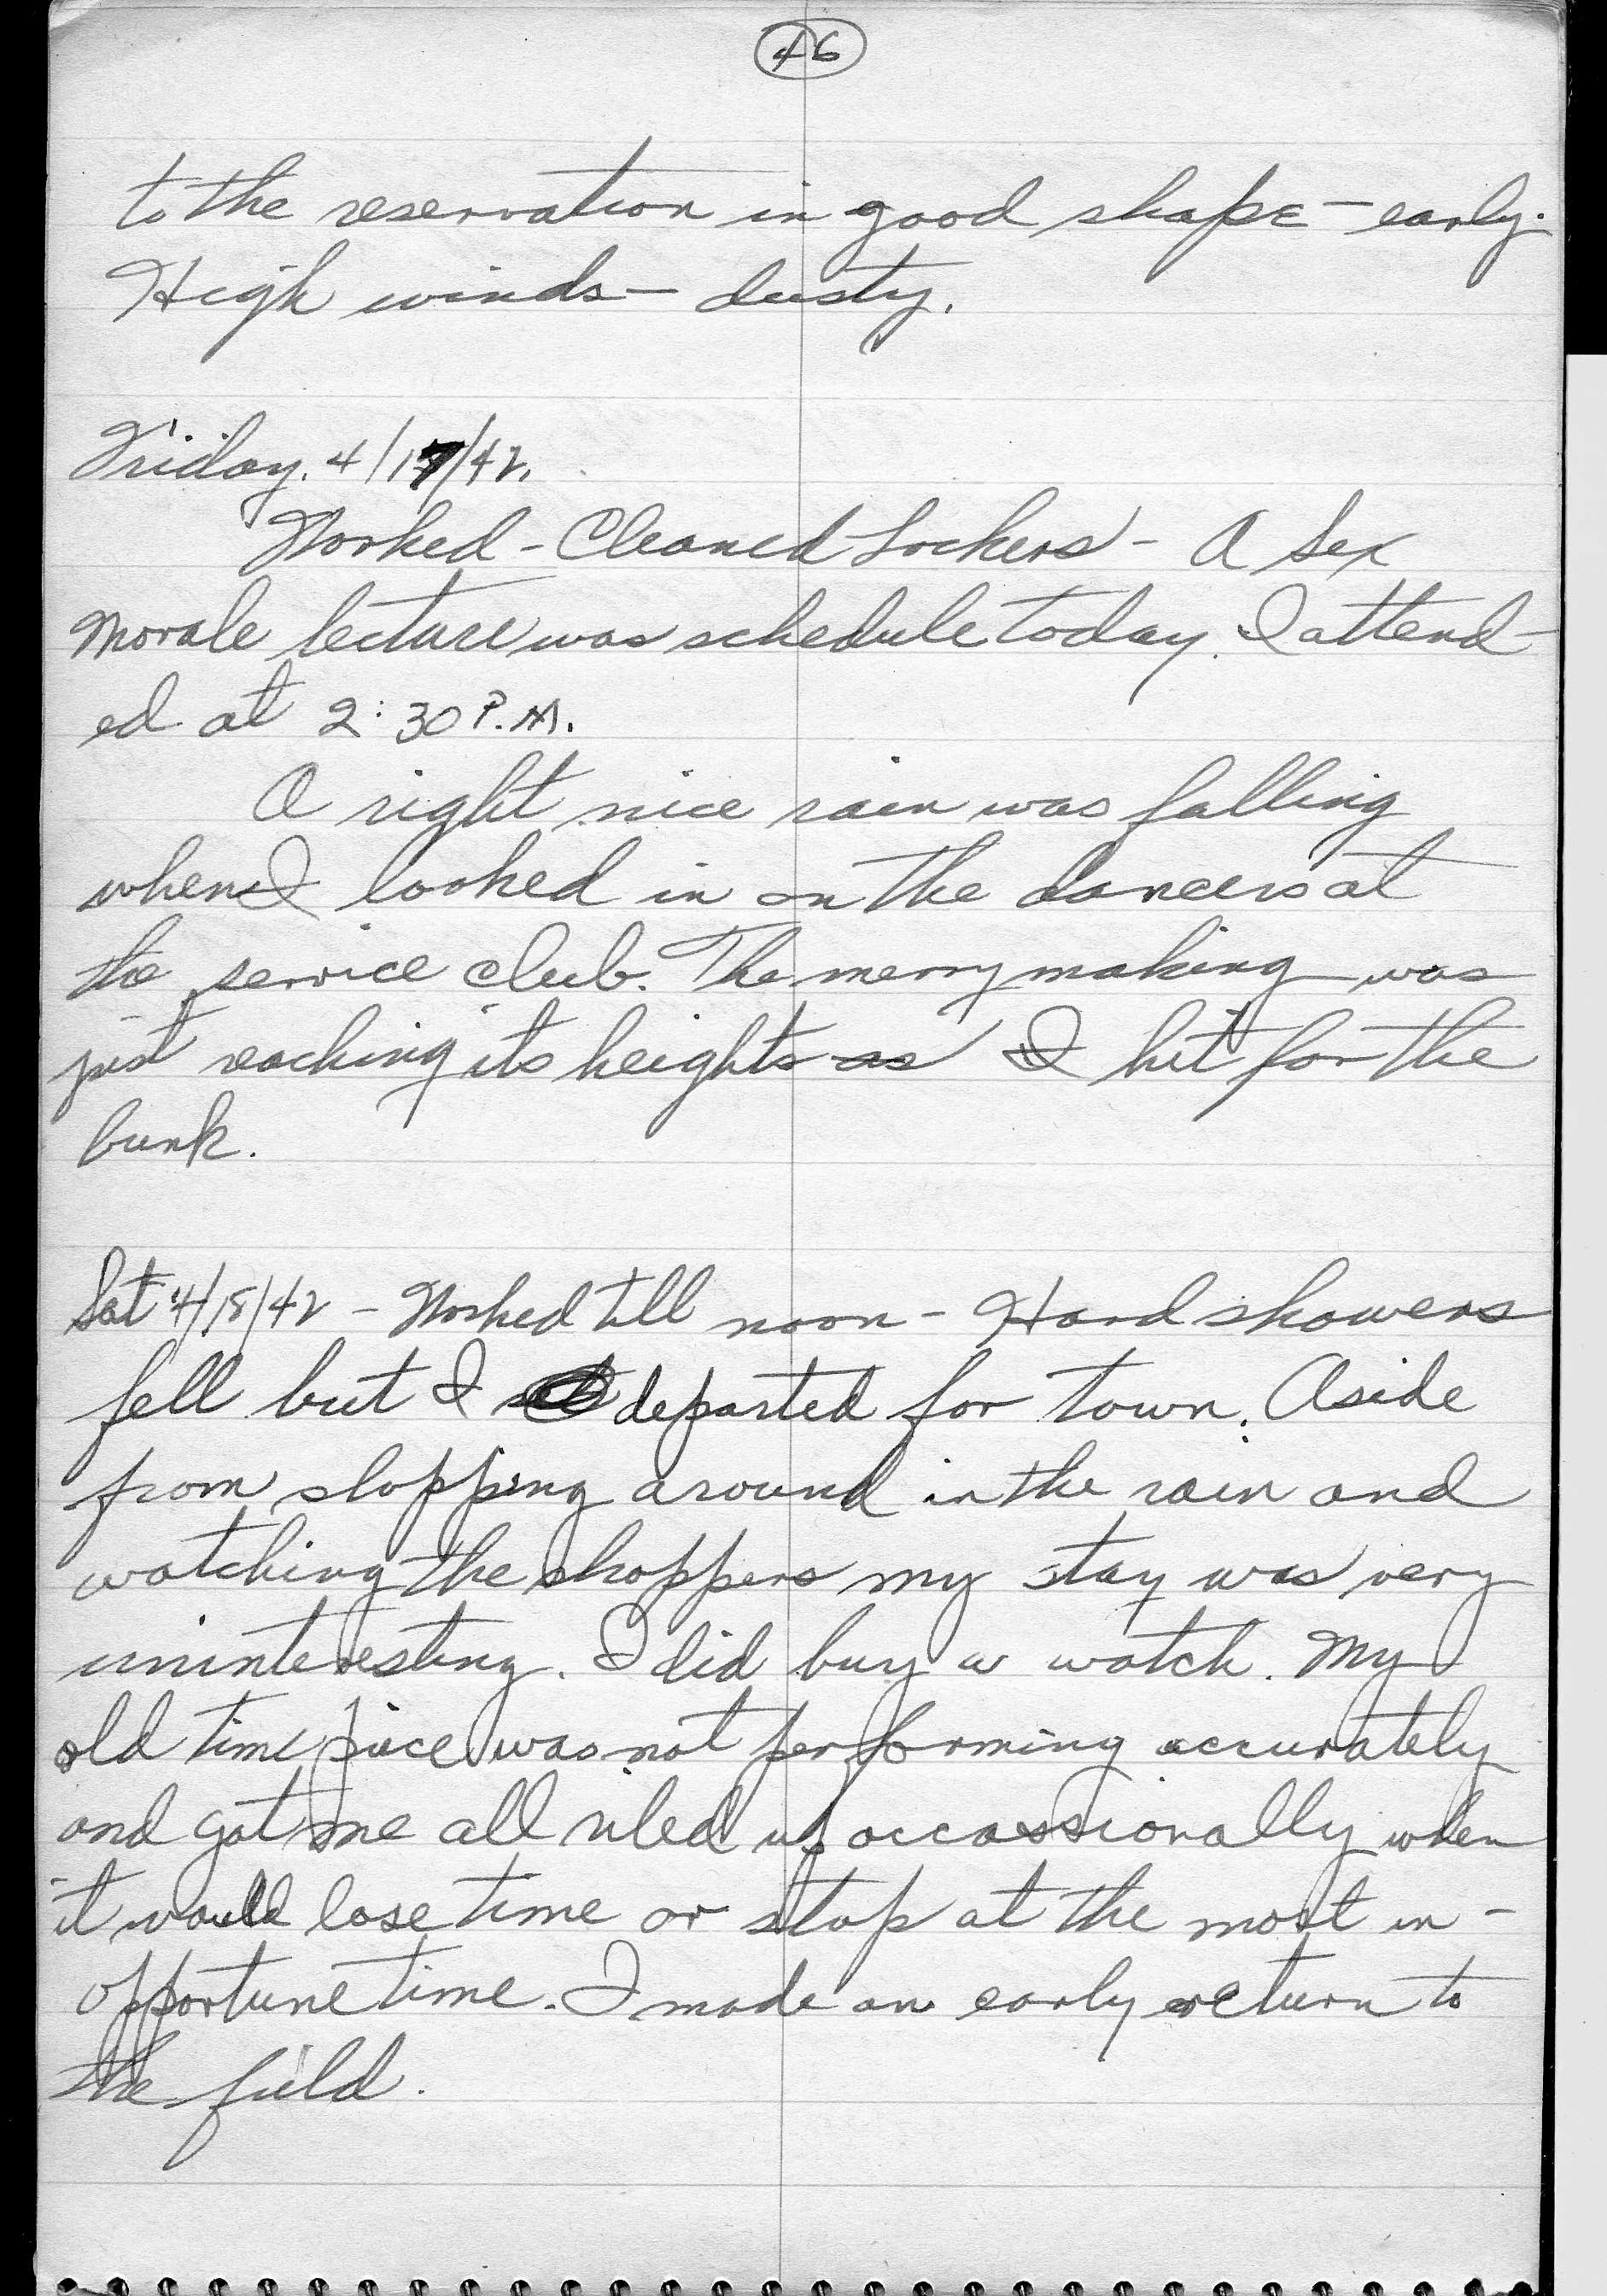 46
to the reservation in good shape - early.
High winds - dusty.
Friday. 4/17/42.
Worked - Cleaned Lockers - A Sex
Morale lecture was schedule today. I attend-
ed at 2:30 P.M.
A right nice rain was falling
when I looked in on the dancers at
the service club. The merry making was
just reaching its heights as I hit for the
bunk.
Sat 4/18/42 - Worked till noon - Hard showers
fell but I departed for town. Aside
from slopping around in the rain and
watching the shoppers my stay was very
uninteresting. I did buy a watch. My
old time piece was not performing accurately
and got me all riled up occassionally when
it would lose time or stop at the most in-
opportune time. I made an early return to
the field.